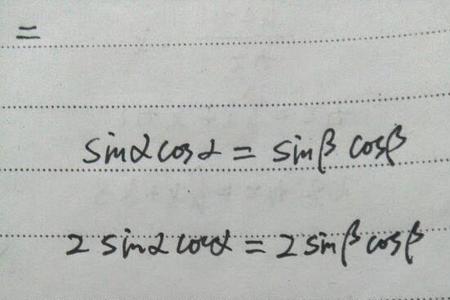 =
sinαcosα = sinβ cosβ
2 sinαcosα = 2 sinβcosβ